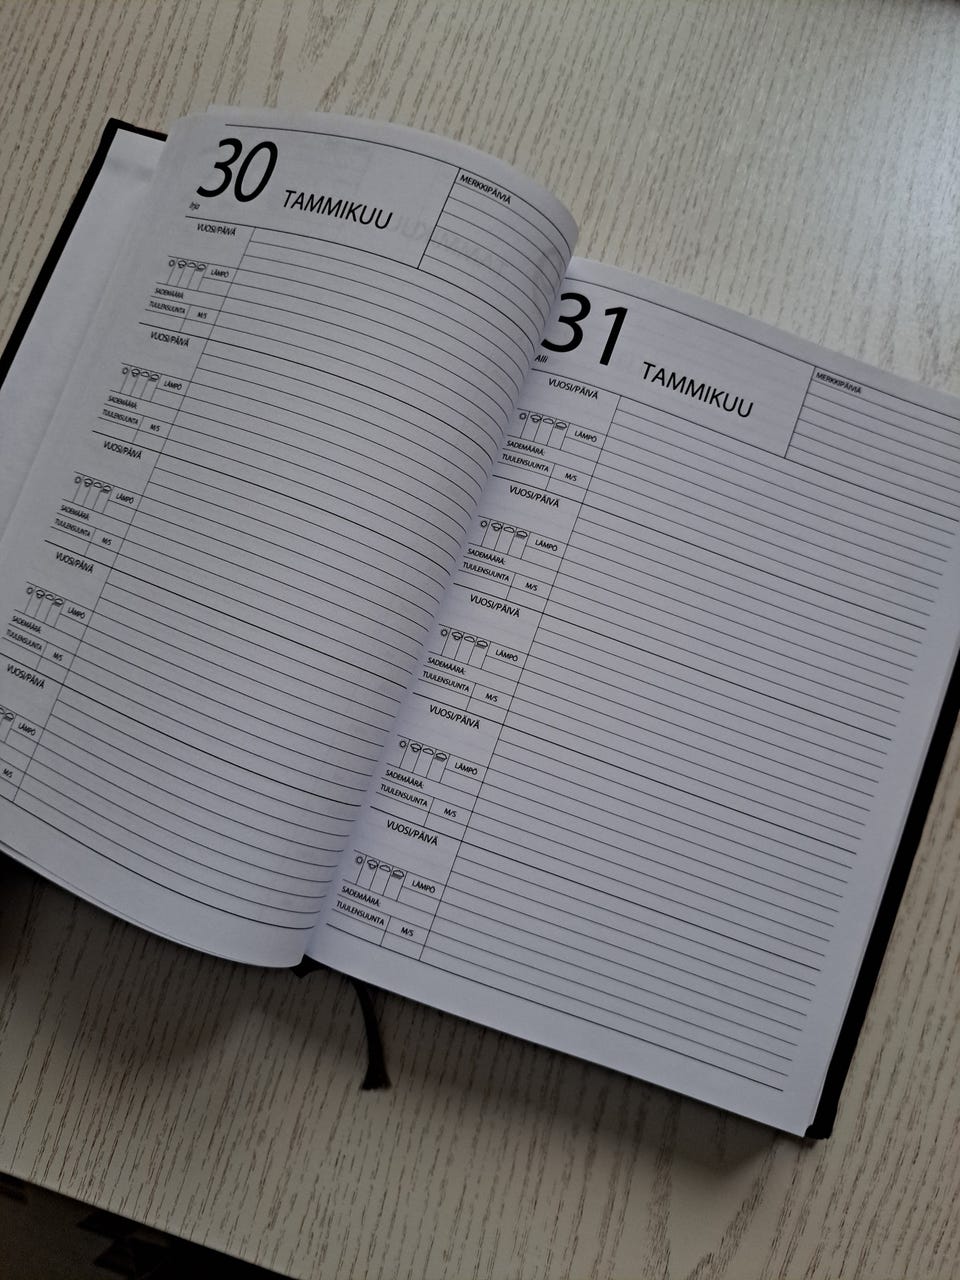 30 TAMMIKUU
Irja
MERKKIPÄIVIÄ
VUOSI/PÄIVÄ
LÄMPÖ
SADEMÄÄRÄ:
TUULENSUUNTA M/S
VUOSI/PÄIVÄ
LÄMPÖ
SADEMÄÄRÄ:
TUULENSUUNTA M/S
VUOSI/PÄIVÄ
LÄMPÖ
SADEMÄÄRÄ:
TUULENSUUNTA M/S
VUOSI/PÄIVÄ
LÄMPÖ
SADEMÄÄRÄ:
TUULENSUUNTA M/S
VUOSI/PÄIVÄ
LÄMPÖ
M/S
31 TAMMIKUU
Alli
MERKKIPÄIVIÄ
VUOSI/PÄIVÄ
LÄMPÖ
SADEMÄÄRÄ:
TUULENSUUNTA M/S
VUOSI/PÄIVÄ
LÄMPÖ
SADEMÄÄRÄ:
TUULENSUUNTA M/S
VUOSI/PÄIVÄ
LÄMPÖ
SADEMÄÄRÄ:
TUULENSUUNTA M/S
VUOSI/PÄIVÄ
LÄMPÖ
SADEMÄÄRÄ:
TUULENSUUNTA M/S
VUOSI/PÄIVÄ
LÄMPÖ
SADEMÄÄRÄ:
TUULENSUUNTA M/S